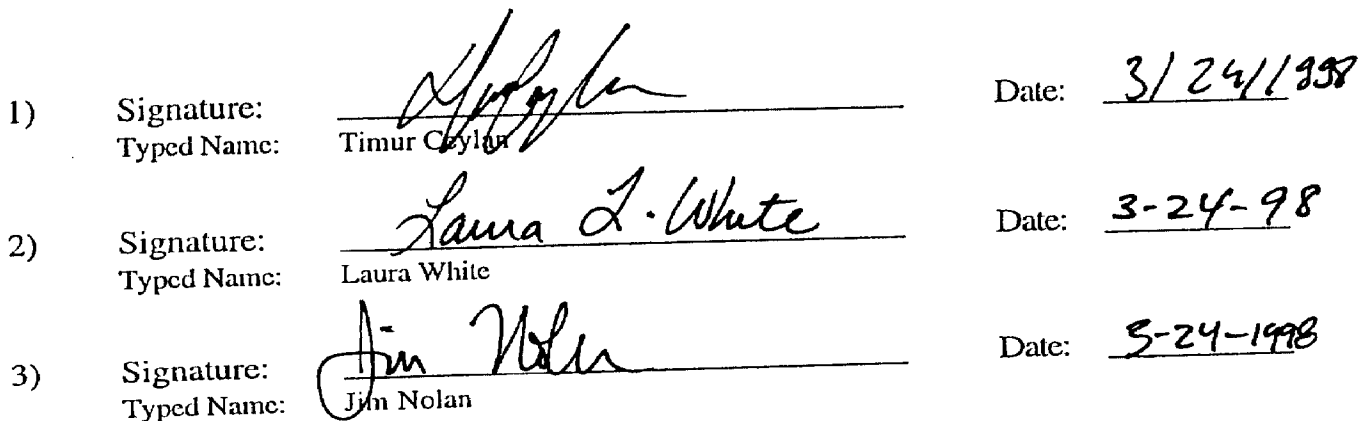 1) Signature: Date: 3/24/1998
Typed Name: Timur Ceylan
2) Signature: Laura L. White Date: 3-24-98
Typed Name: Laura White
3) Signature: Jim Nolan Date: 3-24-1998
Typed Name: Jim Nolan